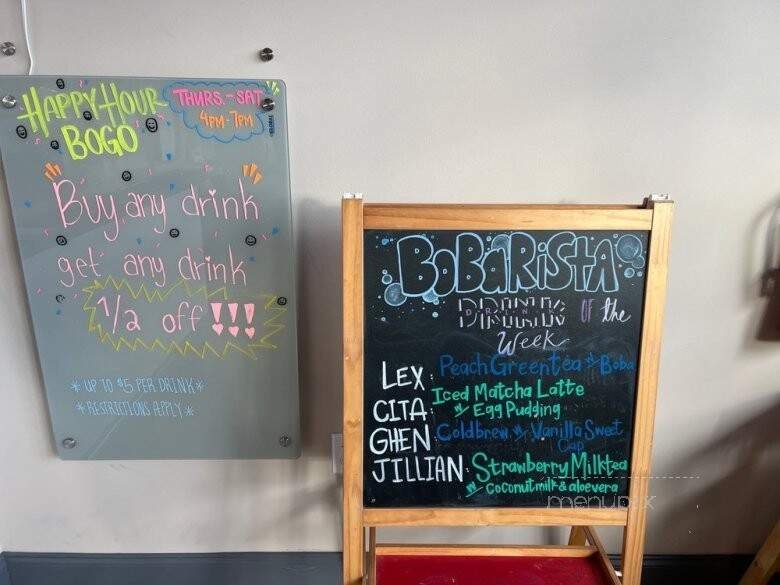 HAPPY HOUR
BOGO
THURS.-SAT
4PM-7PM
Buy any drink
get any drink
1/2 off!!!
*UP TO $5 PER DRINK*
*RESTRICTIONS APPLY*
BOBARISTA
DRINK OF the
Week
LEX: Peach Green tea w/ Boba
CITA: Iced Matcha Latte
w/ Egg Pudding
GHEN: Coldbrew w/ Vanilla Sweet
JILLIAN: Strawberry Milktea
w/ Coconut milk & aloevera
menupix